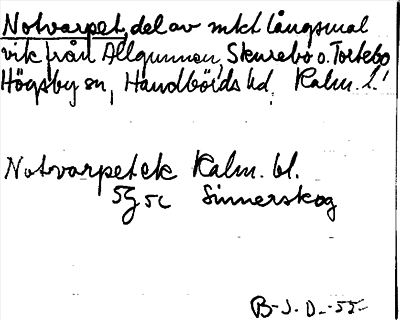 Notvarpet, del av mkt långsmal
vik från Allgunnen, Skurebo o. Tortebo
Högsby sn, Handbörds hd, Kalm. l.
Notvarpet ek Kalm. bl.
5G 5c Sinnerskog
B-J. D. -55-